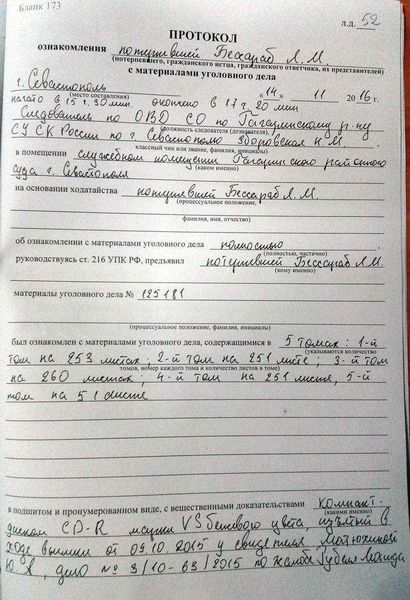 Бланк 173
л.д. 52
ПРОТОКОЛ
ознакомления потерпевшей Бессараб Л.М.
(потерпевшего, гражданского истца, гражданского ответчика, их представителей)
с материалами уголовного дела
г. Севастополь «14» 11 2016 г.
(место составления)
начато в 15 ч. 30 мин. окончено в 17 ч 20 мин
Следователь по ОВД СО по Гагаринскому р-ну
(должность следователя (дознавателя),
СУ СК России по г Севастополю Зборовская Н.М.
классный чин или звание, фамилия, инициалы)
в помещении служебном помещении Гагаринского районного
(каком именно)
суда г. Севастополя
на основании ходатайства потерпевшей Бессараб Л.М.
(процессуальное положение,
фамилия, имя, отчество)
об ознакомлении с материалами уголовного дела полностью
(полностью, частично)
руководствуясь ст. 216 УПК РФ, предъявил потерпевшей Бессараб Л.М.
(кому именно)
материалы уголовного дела № 125181
(процессуальное положение, фамилия, инициалы)
был ознакомлен с материалами уголовного дела, содержащимися в 5 томах: 1-й
(указываются количество
том на 253 листах; 2-й том на 251 листе; 3-й том
томов, номер каждого тома и количество листов в томе)
на 260 листах; 4-й том на 251 листе, 5-й
том на 51 листе
в подшитом и пронумерованном виде, с вещественными доказательствами компакт-
(какими именно)
диском CD-R марки VS бежевого цвета, изъятый в
ходе выемки от 09.10.2015 у свидетеля Матюхиной
Ю.А, дело № 3/10-63/2015 по жалобе Рубеля